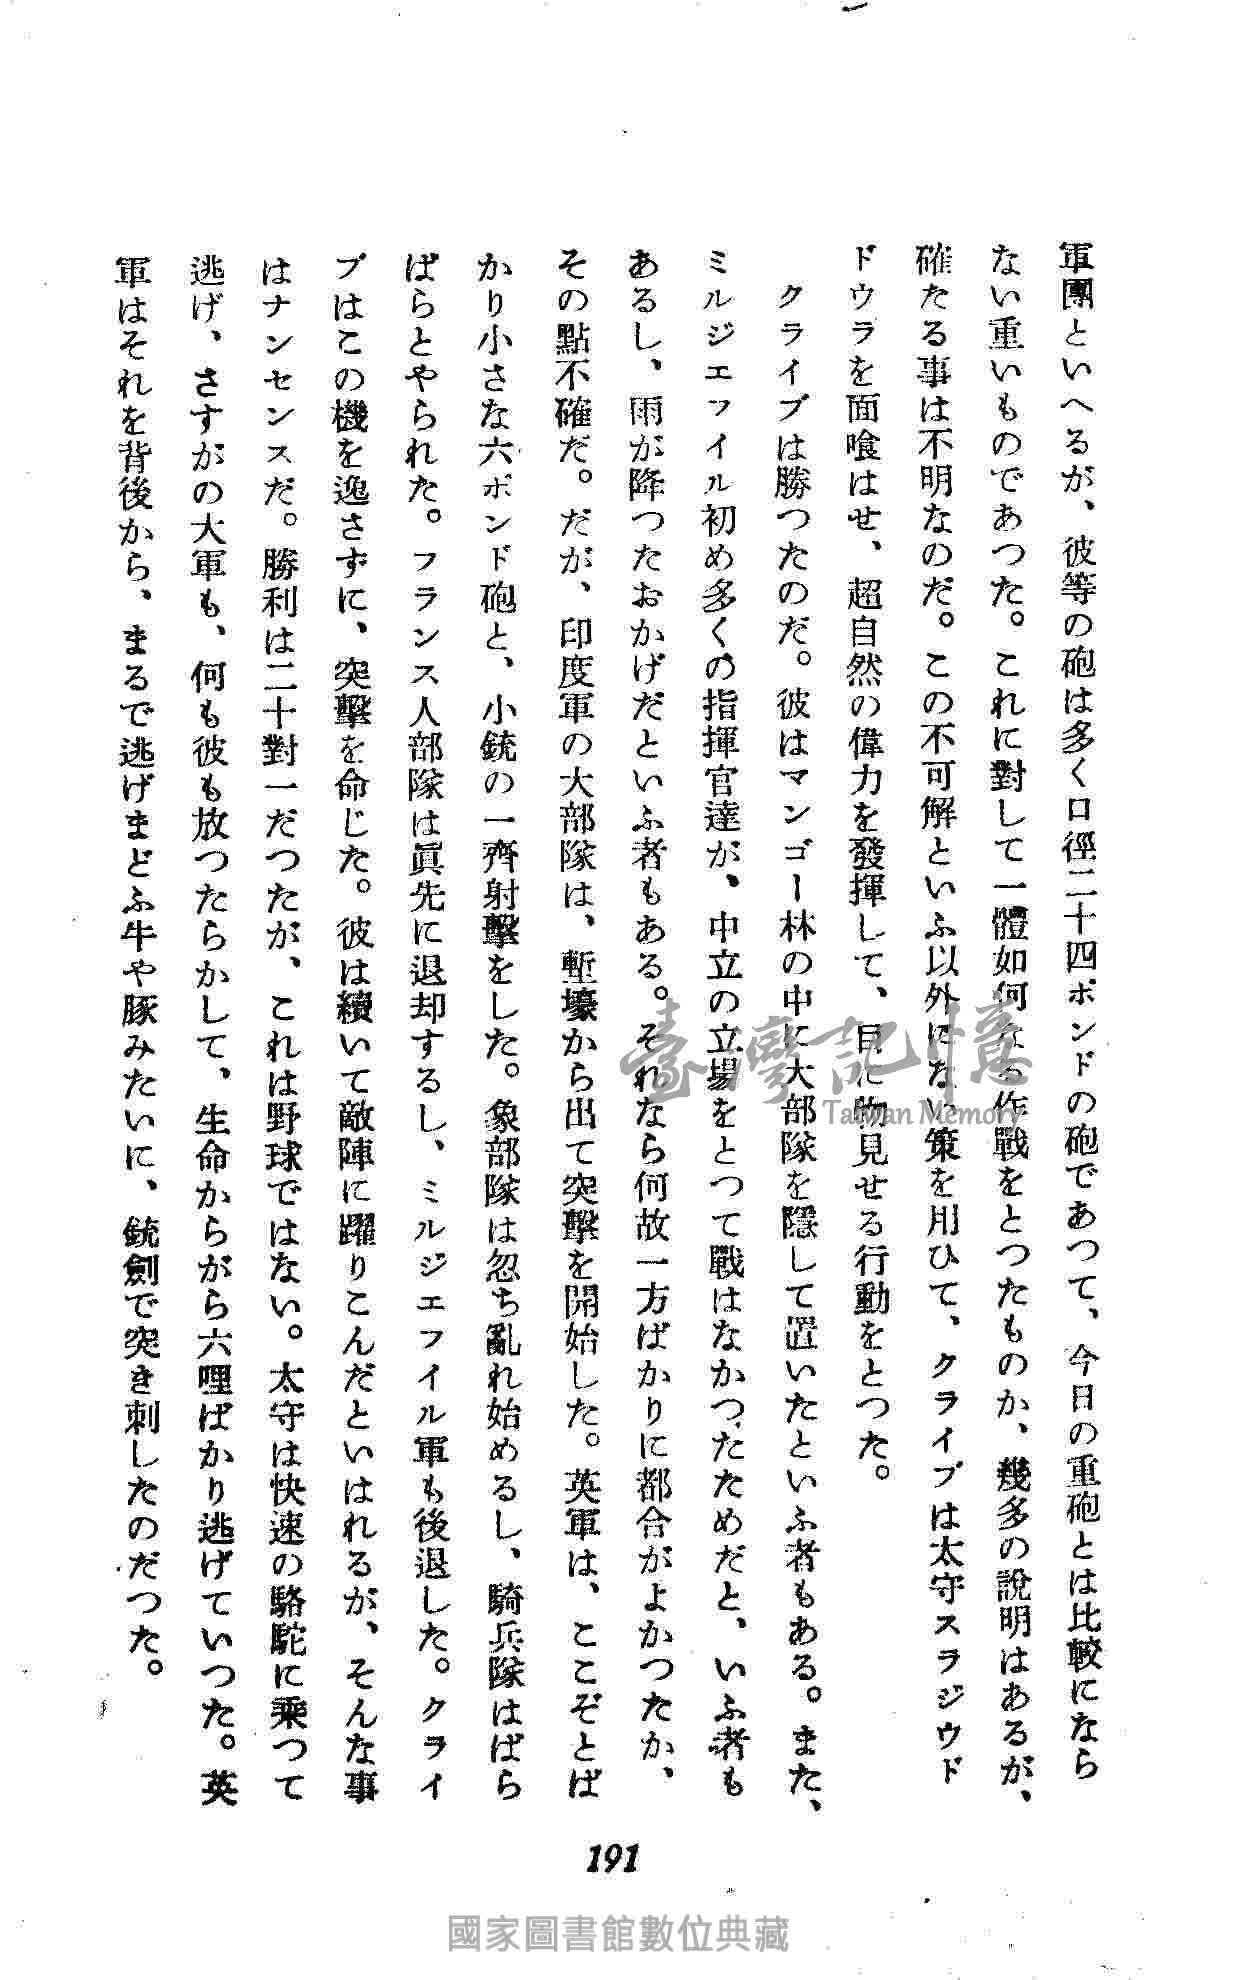 軍團といへるが、彼等の砲は多く口徑二十四ポンドの砲であつて、今日の重砲とは比較になら
ない重いものであつた。これに對して一體如何なる作戰をとつたものか、幾多の說明はあるが、
確たる事は不明なのだ。この不可解といふ以外にない策を用ひて、クライブは太守スラジウド
ドウラを面喰はせ、超自然の偉力を發揮して、目に物見せる行動をとつた。
クライブは勝つたのだ。彼はマンゴー林の中に大部隊を隱して置いたといふ者もある。また、
ミルジエフイル初め多くの指揮官達が、中立の立場をとつて戰はなかつたためだと、いふ者も
あるし、雨が降つたおかげだといふ者もある。それなら何故一方ばかりに都合がよかつたか、
その點不確だ。だが、印度軍の大部隊は、塹壕から出て突擊を開始した。英軍は、ここぞとば
かり小さな六ポンド砲と、小銃の一齊射擊をした。象部隊は忽ち亂れ始めるし、騎兵隊はばら
ばらとやられた。フランス人部隊は眞先に退却するし、ミルジエフイル軍も後退した。クライ
ブはこの機を逸さずに、突擊を命じた。彼は續いて敵陣に躍りこんだといはれるが、そんな事
はナンセンスだ。勝利は二十對一だつたが、これは野球ではない。太守は快速の駱駝に乘つて
逃げ、さすがの大軍も、何も彼も放つたらかして、生命からがら六哩ばかり逃げていつた。英
軍はそれを背後から、まるで逃げまどふ牛や豚みたいに、銃劍で突き刺したのだつた。
191
臺灣記憶
Taiwan Memory
國家圖書館數位典藏